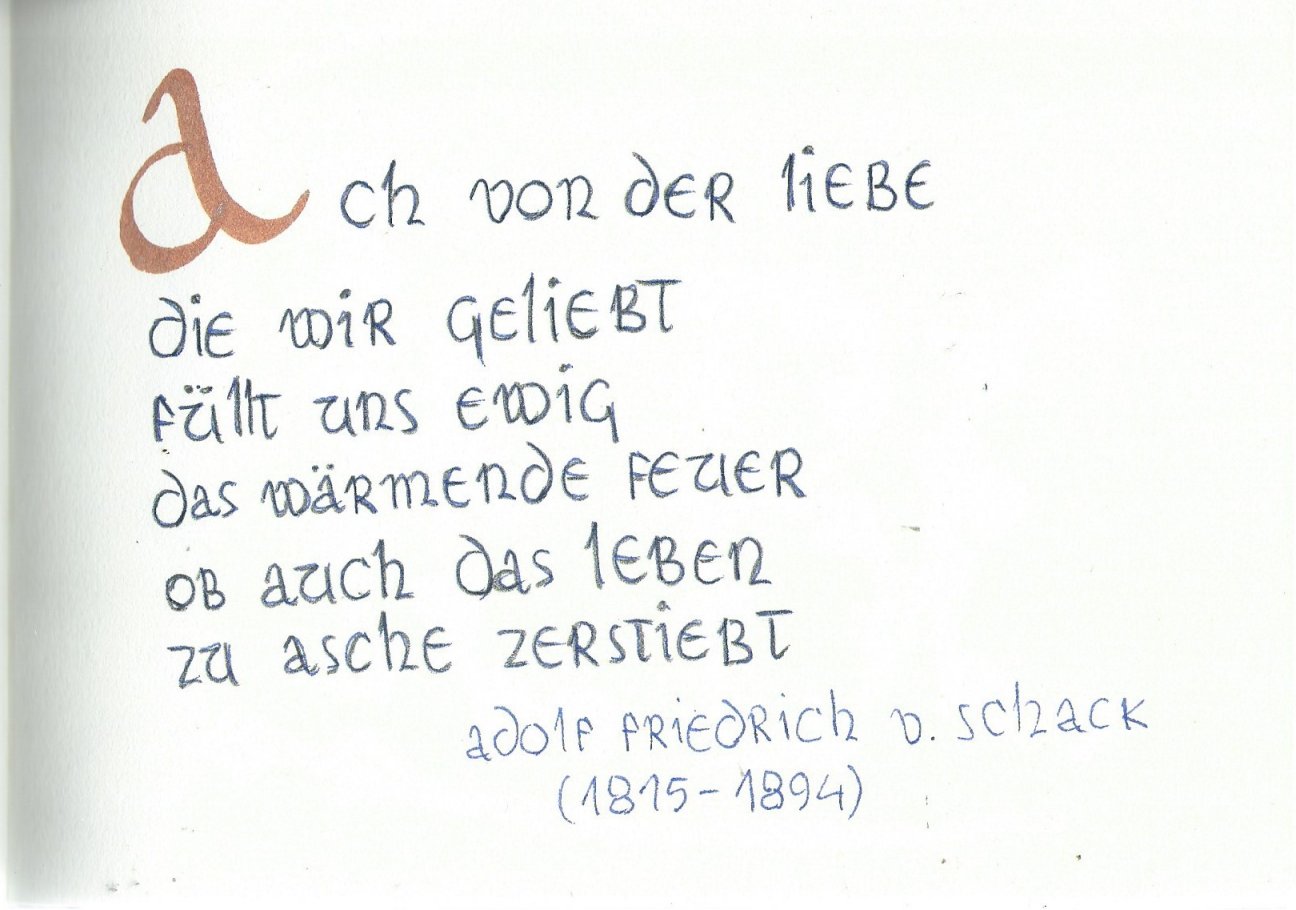 Ach von der liebe
die wir geliebt
füllt uns ewig
das wärmende feuer
ob auch das leben
zu asche zerstiebt
adolf friedrich v. schack
(1815-1894)